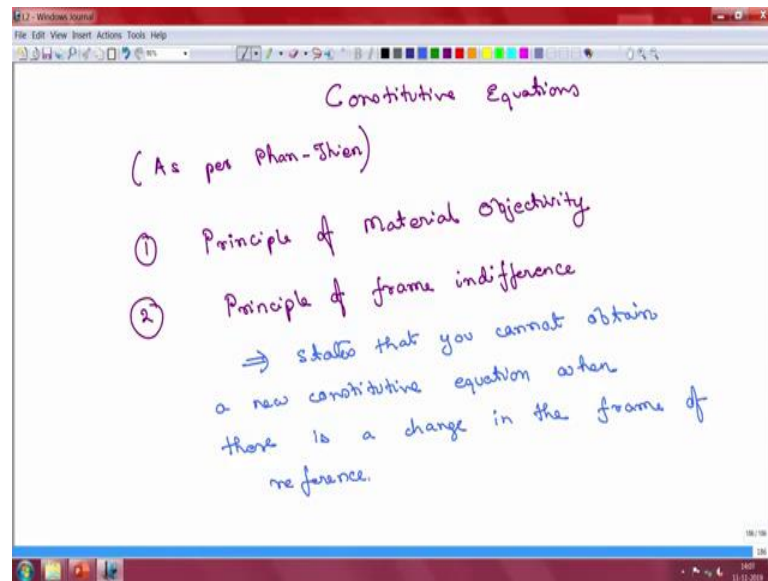 L2 - Windows Journal
File Edit View Insert Actions Tools Help
Constitutive Equations
(As per Phan-Thien)
1 Principle of Material Objectivity
2 Principle of frame indifference
⇒ states that you cannot obtain
a new constitutive equation when
there is a change in the frame of
reference.
186/186
186
14:03
11-11-2019